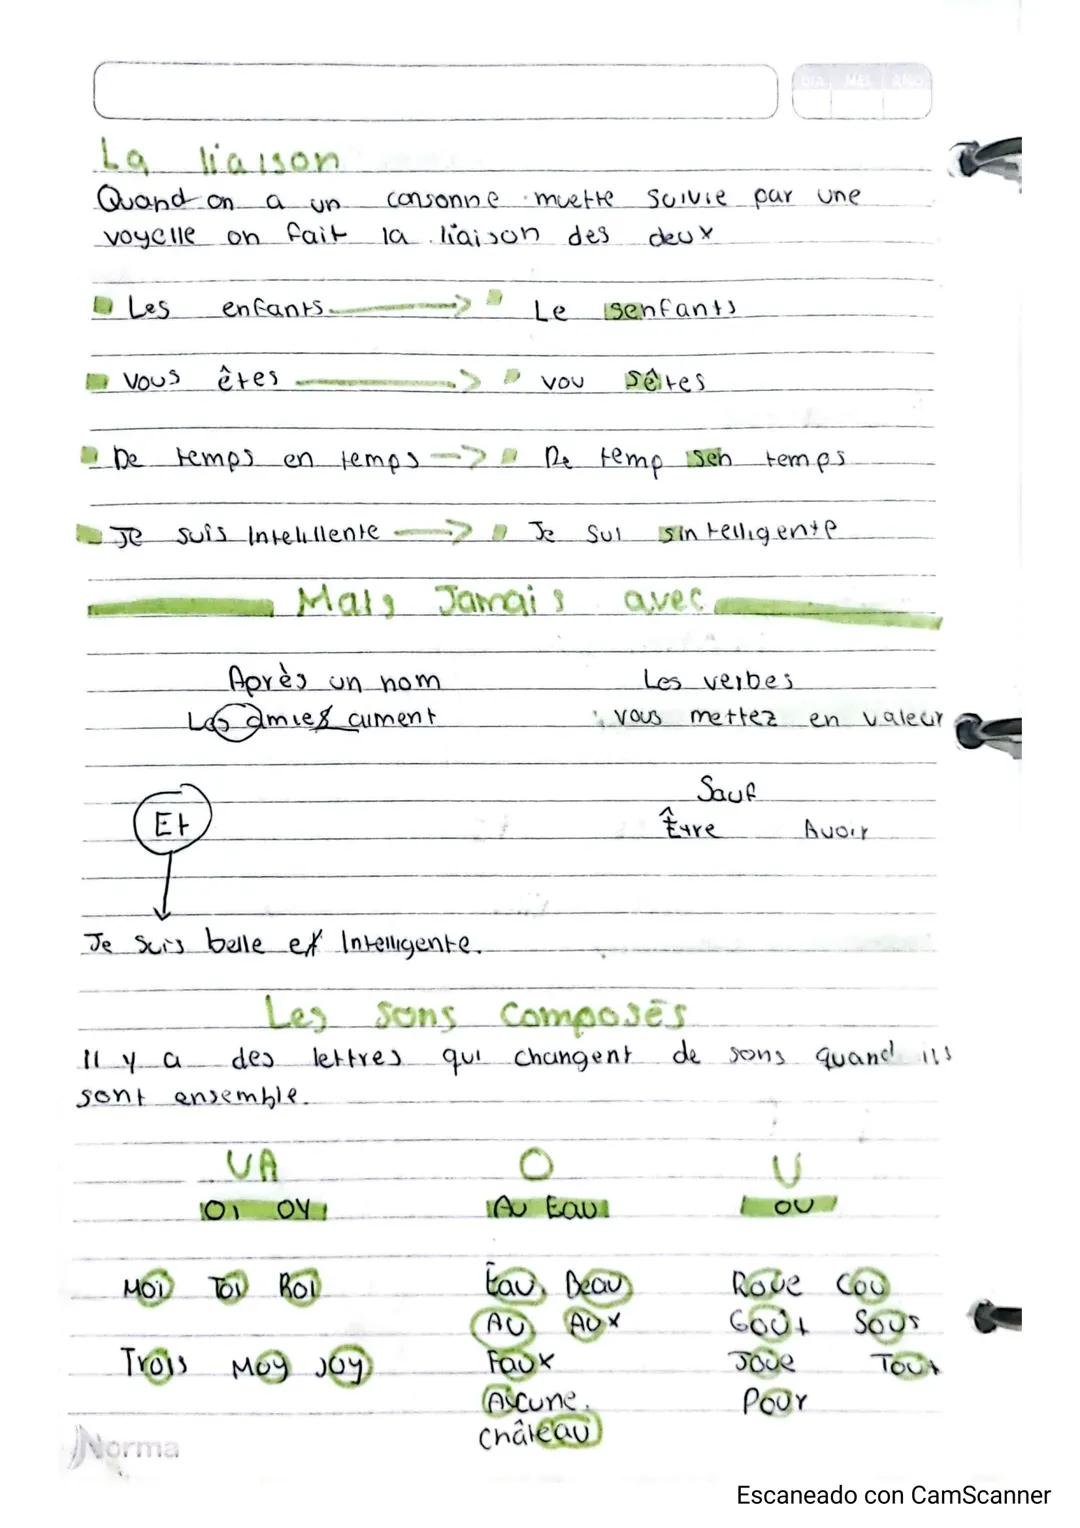 DIA MES AÑO
La liaison
Quand on a un consonne muette suivie par une
voyelle on fait la liaison des deux
Les enfants → Le senfants
Vous êtes → vou sêtes
De temps en temps → De temp sen temps
Je suis Intelillente → Je sui sintelligente
Mais Jamais avec
Après un nom Les verbes
Les amies aiment vous mettez en valeur
Sauf
Et Être Avoir
Je suis belle et Intelligente.
Les sons composés
Il y a des lettres qui changent de sons quand ils
sont ensemble.
UA O U
OI OY Au Eau ou
Moi Toi Roi Eau Beau Roue Cou
Au Aux Goût Sous
Trois Moy Joy Faux Joue Tout
Aucune Pour
Château
Norma
Escaneado con CamScanner